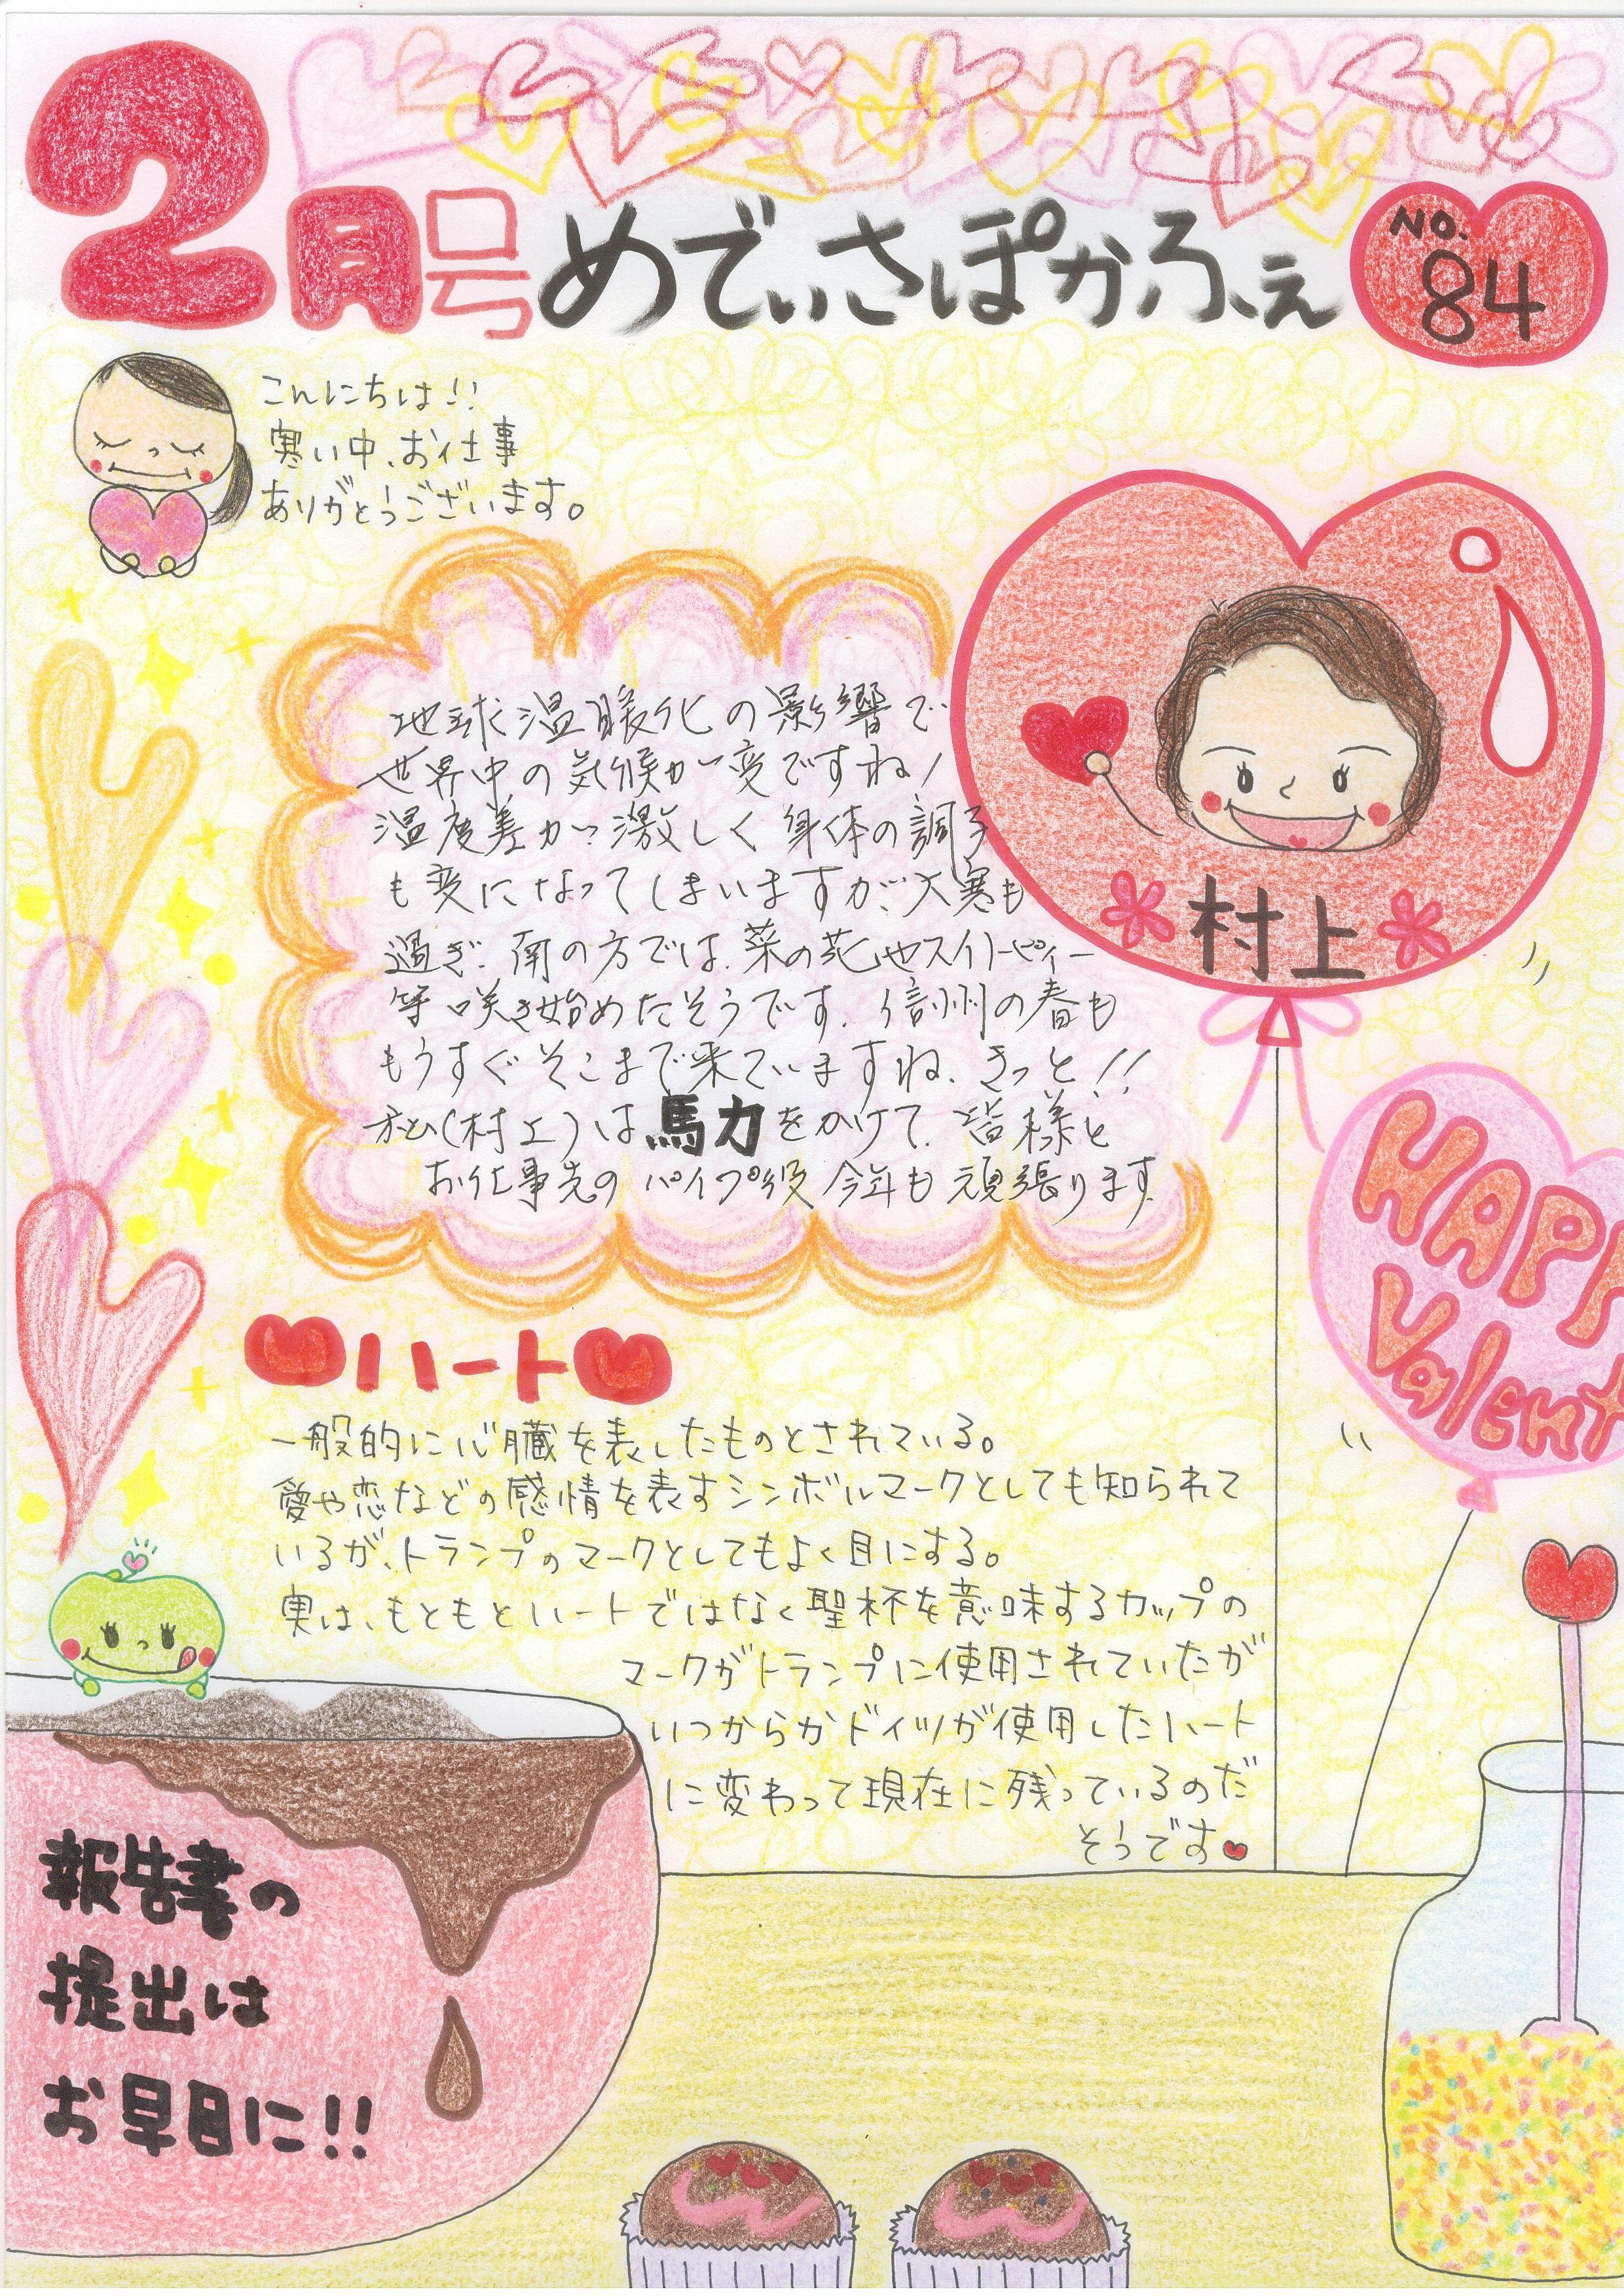 2月号 めでぃさぽかふぇ NO. 84
こんにちは!!
寒い中、お仕事
ありがとうございます。
地球温暖化の影響で
世界中の気候が変ですね!
温度差が激しく身体の調子
も変になってしまいますが、大寒も
過ぎ、南の方では、菜の花やスイトーピィー
等咲き始めたそうです。信州の春も
もうすぐそこまで来ていますね、きっと!!
私(村上)は馬力をかけて、皆様と
お仕事先のパイプ役今年も頑張ります
村上
HAPP
Valent
ハート
一般的に心臓を表したものとされている。
愛や恋などの感情を表すシンボルマークとしても知られて
いるが、トランプのマークとしてもよく目にする。
実は、もともとハートではなく聖杯を意味するカップの
マークがトランプに使用されていたが
いつからかドイツが使用したハート
に変わって現在に残っているのだ
そうです
報告書の
提出は
お早目に!!